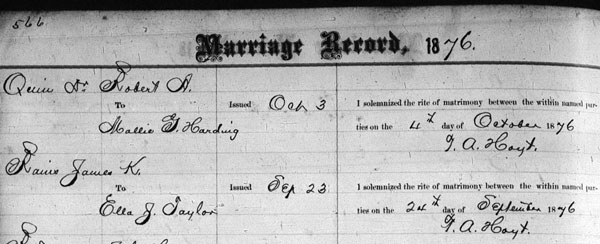 566
Marriage Record, 1876.
Quin Dr Robert A.
To Issued Oct 3 I solemnized the rite of matrimony between the within named par-
Mallie G. Harding ties on the 4th day of October 1876
T. A. Hoyt.
Raine James K.
To Issued Sep 23 I solemnized the rite of matrimony between the within named par-
Ella J. Taylor ties on the 24th day of September 1876
T. A. Hoyt.